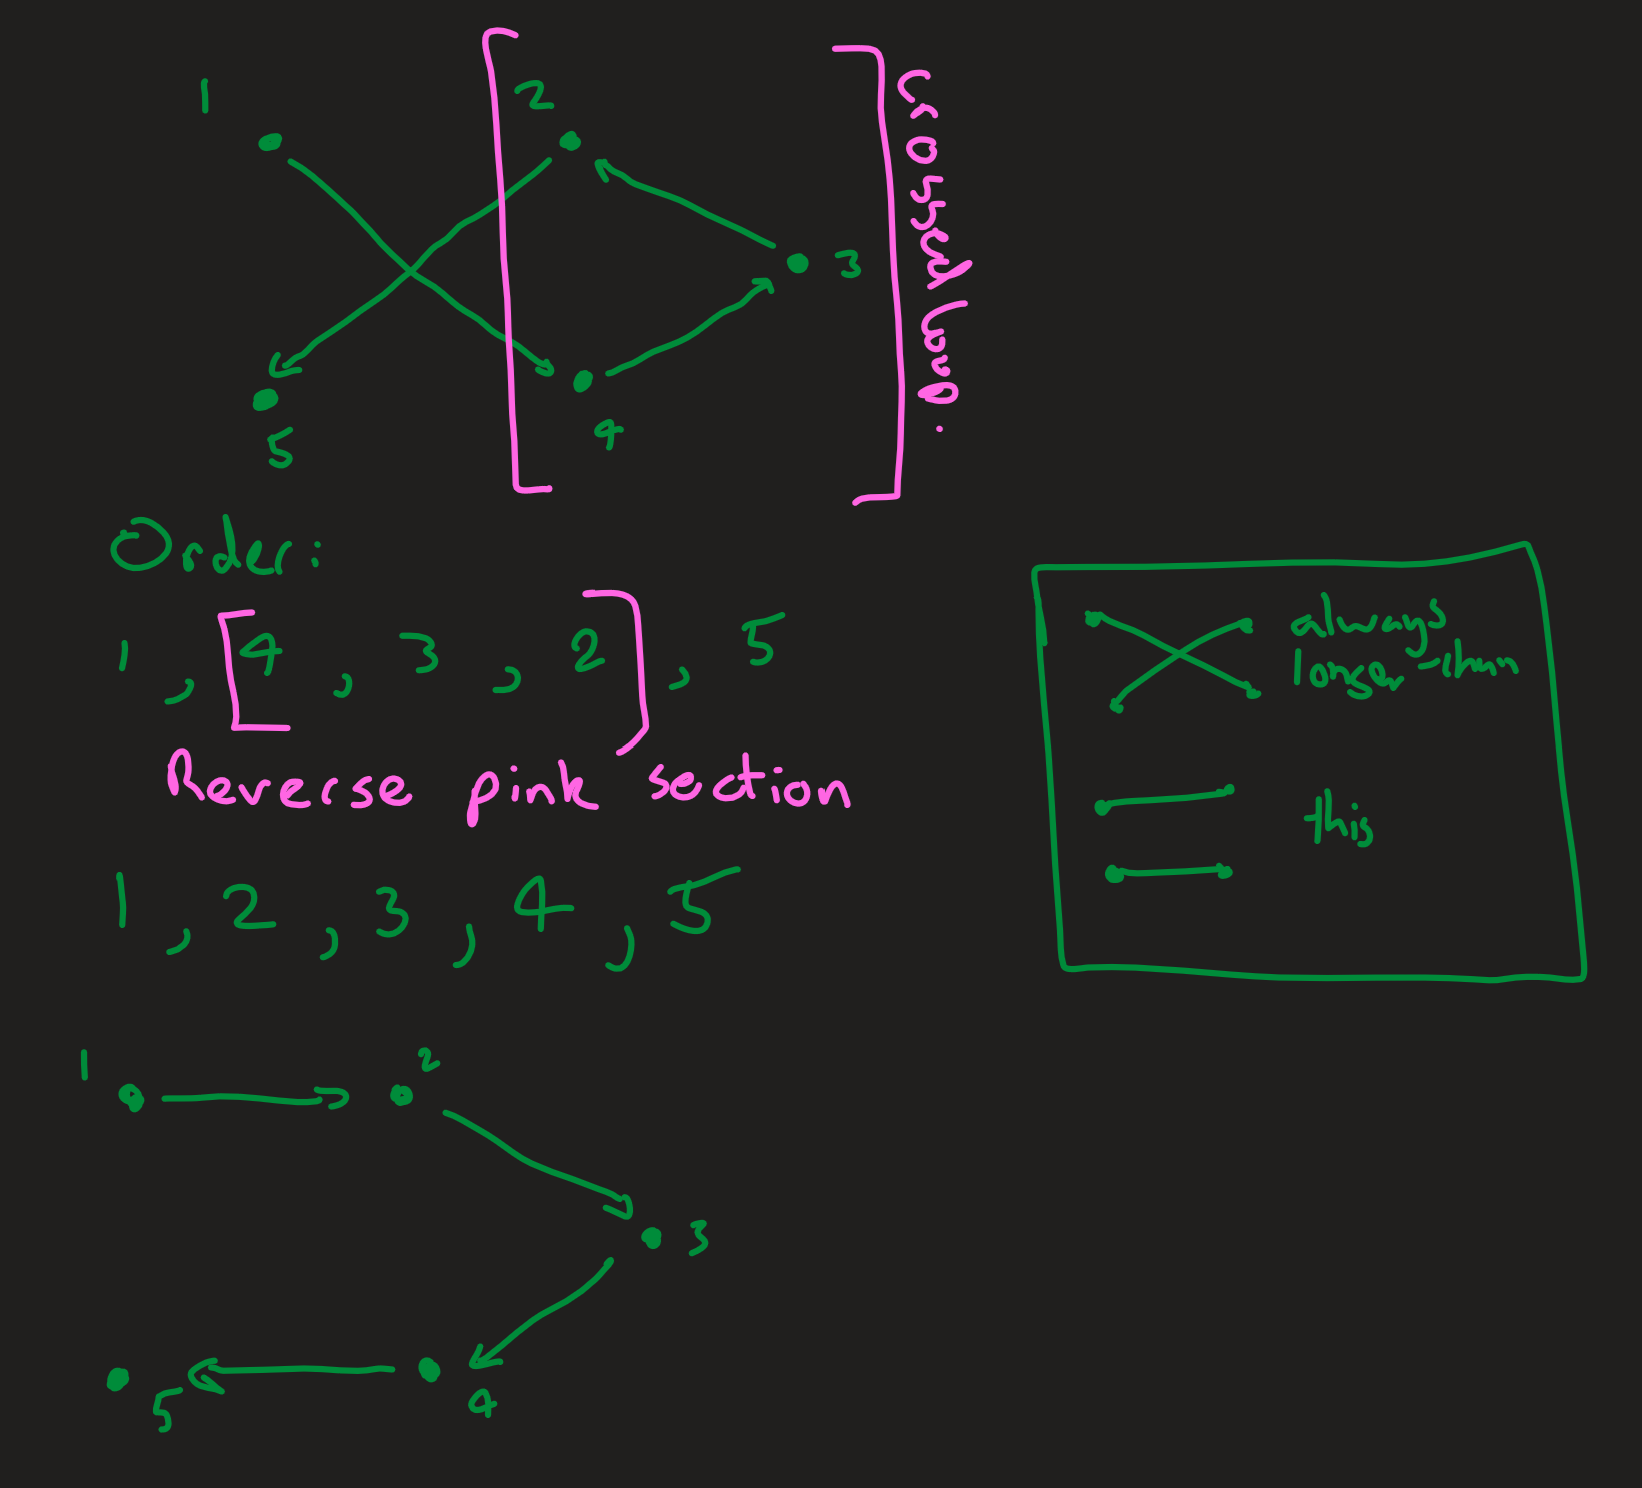 1
2
3
4
5
crossed loop.
Order:
1, [4, 3, 2], 5
Reverse pink section
1, 2, 3, 4, 5
always
longer than
this
1
2
3
4
5